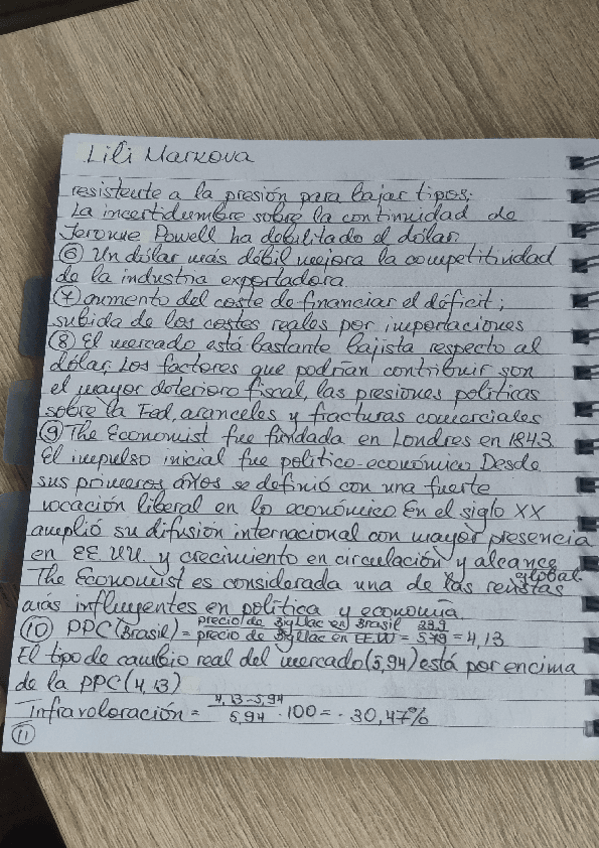 Lili Markova
resistente a la presión para bajar tipos.
La incertidumbre sobre la continuidad de
Jerome Powell ha debilitado el dólar.
⑥ Un dólar más débil mejora la competitividad
de la industria exportadora.
⑦ aumento del coste de financiar el déficit;
subida de los costes reales por importaciones
⑧ El mercado está bastante bajista respecto al
dólar. Los factores que podrían contribuir son
el mayor deterioro fiscal, las presiones políticas
sobre la Fed, aranceles y fracturas comerciales
⑨ The Economist fue fundada en Londres en 1843
El impulso inicial fue político-económico. Desde
sus primeros años se definió con una fuerte
vocación liberal en lo económico. En el siglo XX
amplió su difusión internacional con mayor presencia
en EE UU. y crecimiento en circulación y alcance
global.
The Economist es considerada una de las revistas
más influyentes en política y economía.
⑩ PPC (Brasil) = precio de Big Mac en Brasil / precio de Big Mac en EE.UU = 23.9 / 5,79 = 4,13
El tipo de cambio real del mercado (5,94) está por encima
de la PPC (4,13)
Infravaloración = 4,13-5,94 / 5,94 · 100 = - 30,47%
⑪